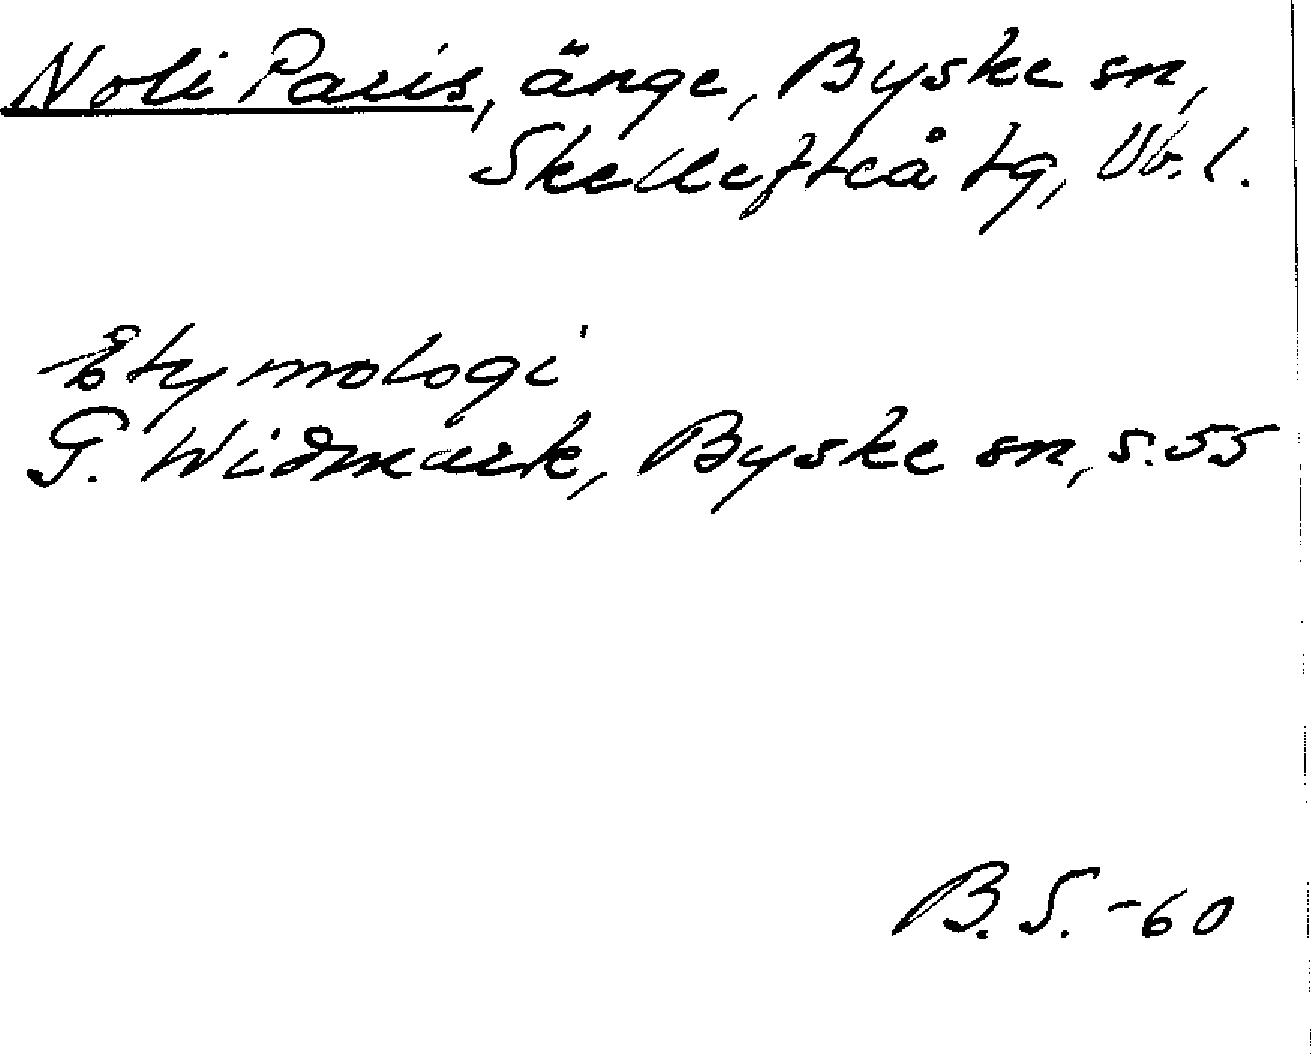 Noli Paris, änge, Byske sn,
Skellefteå tg, Vb. l.
Etymologi
G. Widmark, Byske sn, s. 55
B. S. -60